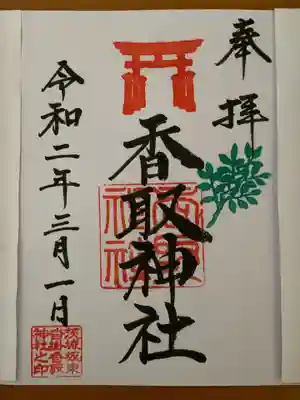 奉拝
香取神社
令和二年三月一日